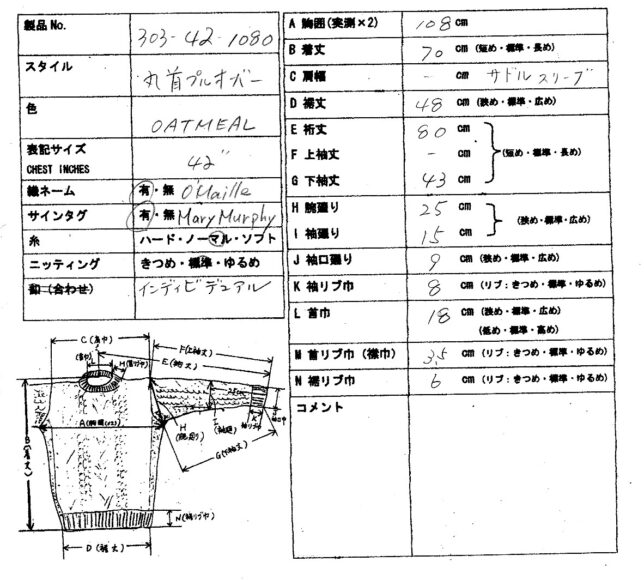 製品No.
303-42-1080
スタイル
丸首プルオーバー
色
OATMEAL
表記サイズ
CHEST INCHES
42"
織ネーム 有・無 O'Maille
サインタグ 有・無 Mary Murphy
糸 ハード・ノーマル・ソフト
ニッティング きつめ・標準・ゆるめ
釦(合わせ) インディビデュアル
A 胸囲(実測×2) 108 cm
B 着丈 70 cm (短め・標準・長め)
C 肩幅 - cm サドルスリーブ
D 裾丈 48 cm (狭め・標準・広め)
E 裄丈 80 cm
F 上袖丈 - cm (短め・標準・長め)
G 下袖丈 43 cm
H 腕廻り 25 cm
(狭め・標準・広め)
I 袖廻り 15 cm
J 袖口廻り 9 cm (狭め・標準・広め)
K 袖リブ巾 8 cm (リブ：きつめ・標準・ゆるめ)
L 首巾 18 cm (狭め・標準・広め)
(低め・標準・高め)
M 首リブ巾(襟巾) 3.5 cm (リブ：きつめ・標準・ゆるめ)
N 裾リブ巾 6 cm (リブ：きつめ・標準・ゆるめ)
コメント
C(肩巾)
F(上袖丈)
E(裄丈)
L
(首巾)
M(首リブ巾)
A(胸囲(×2))
B(着丈)
H
(腕廻り)
I
(袖廻)
K
袖リブ巾
J
G(下袖丈)
N(裾リブ巾)
D(裾丈)